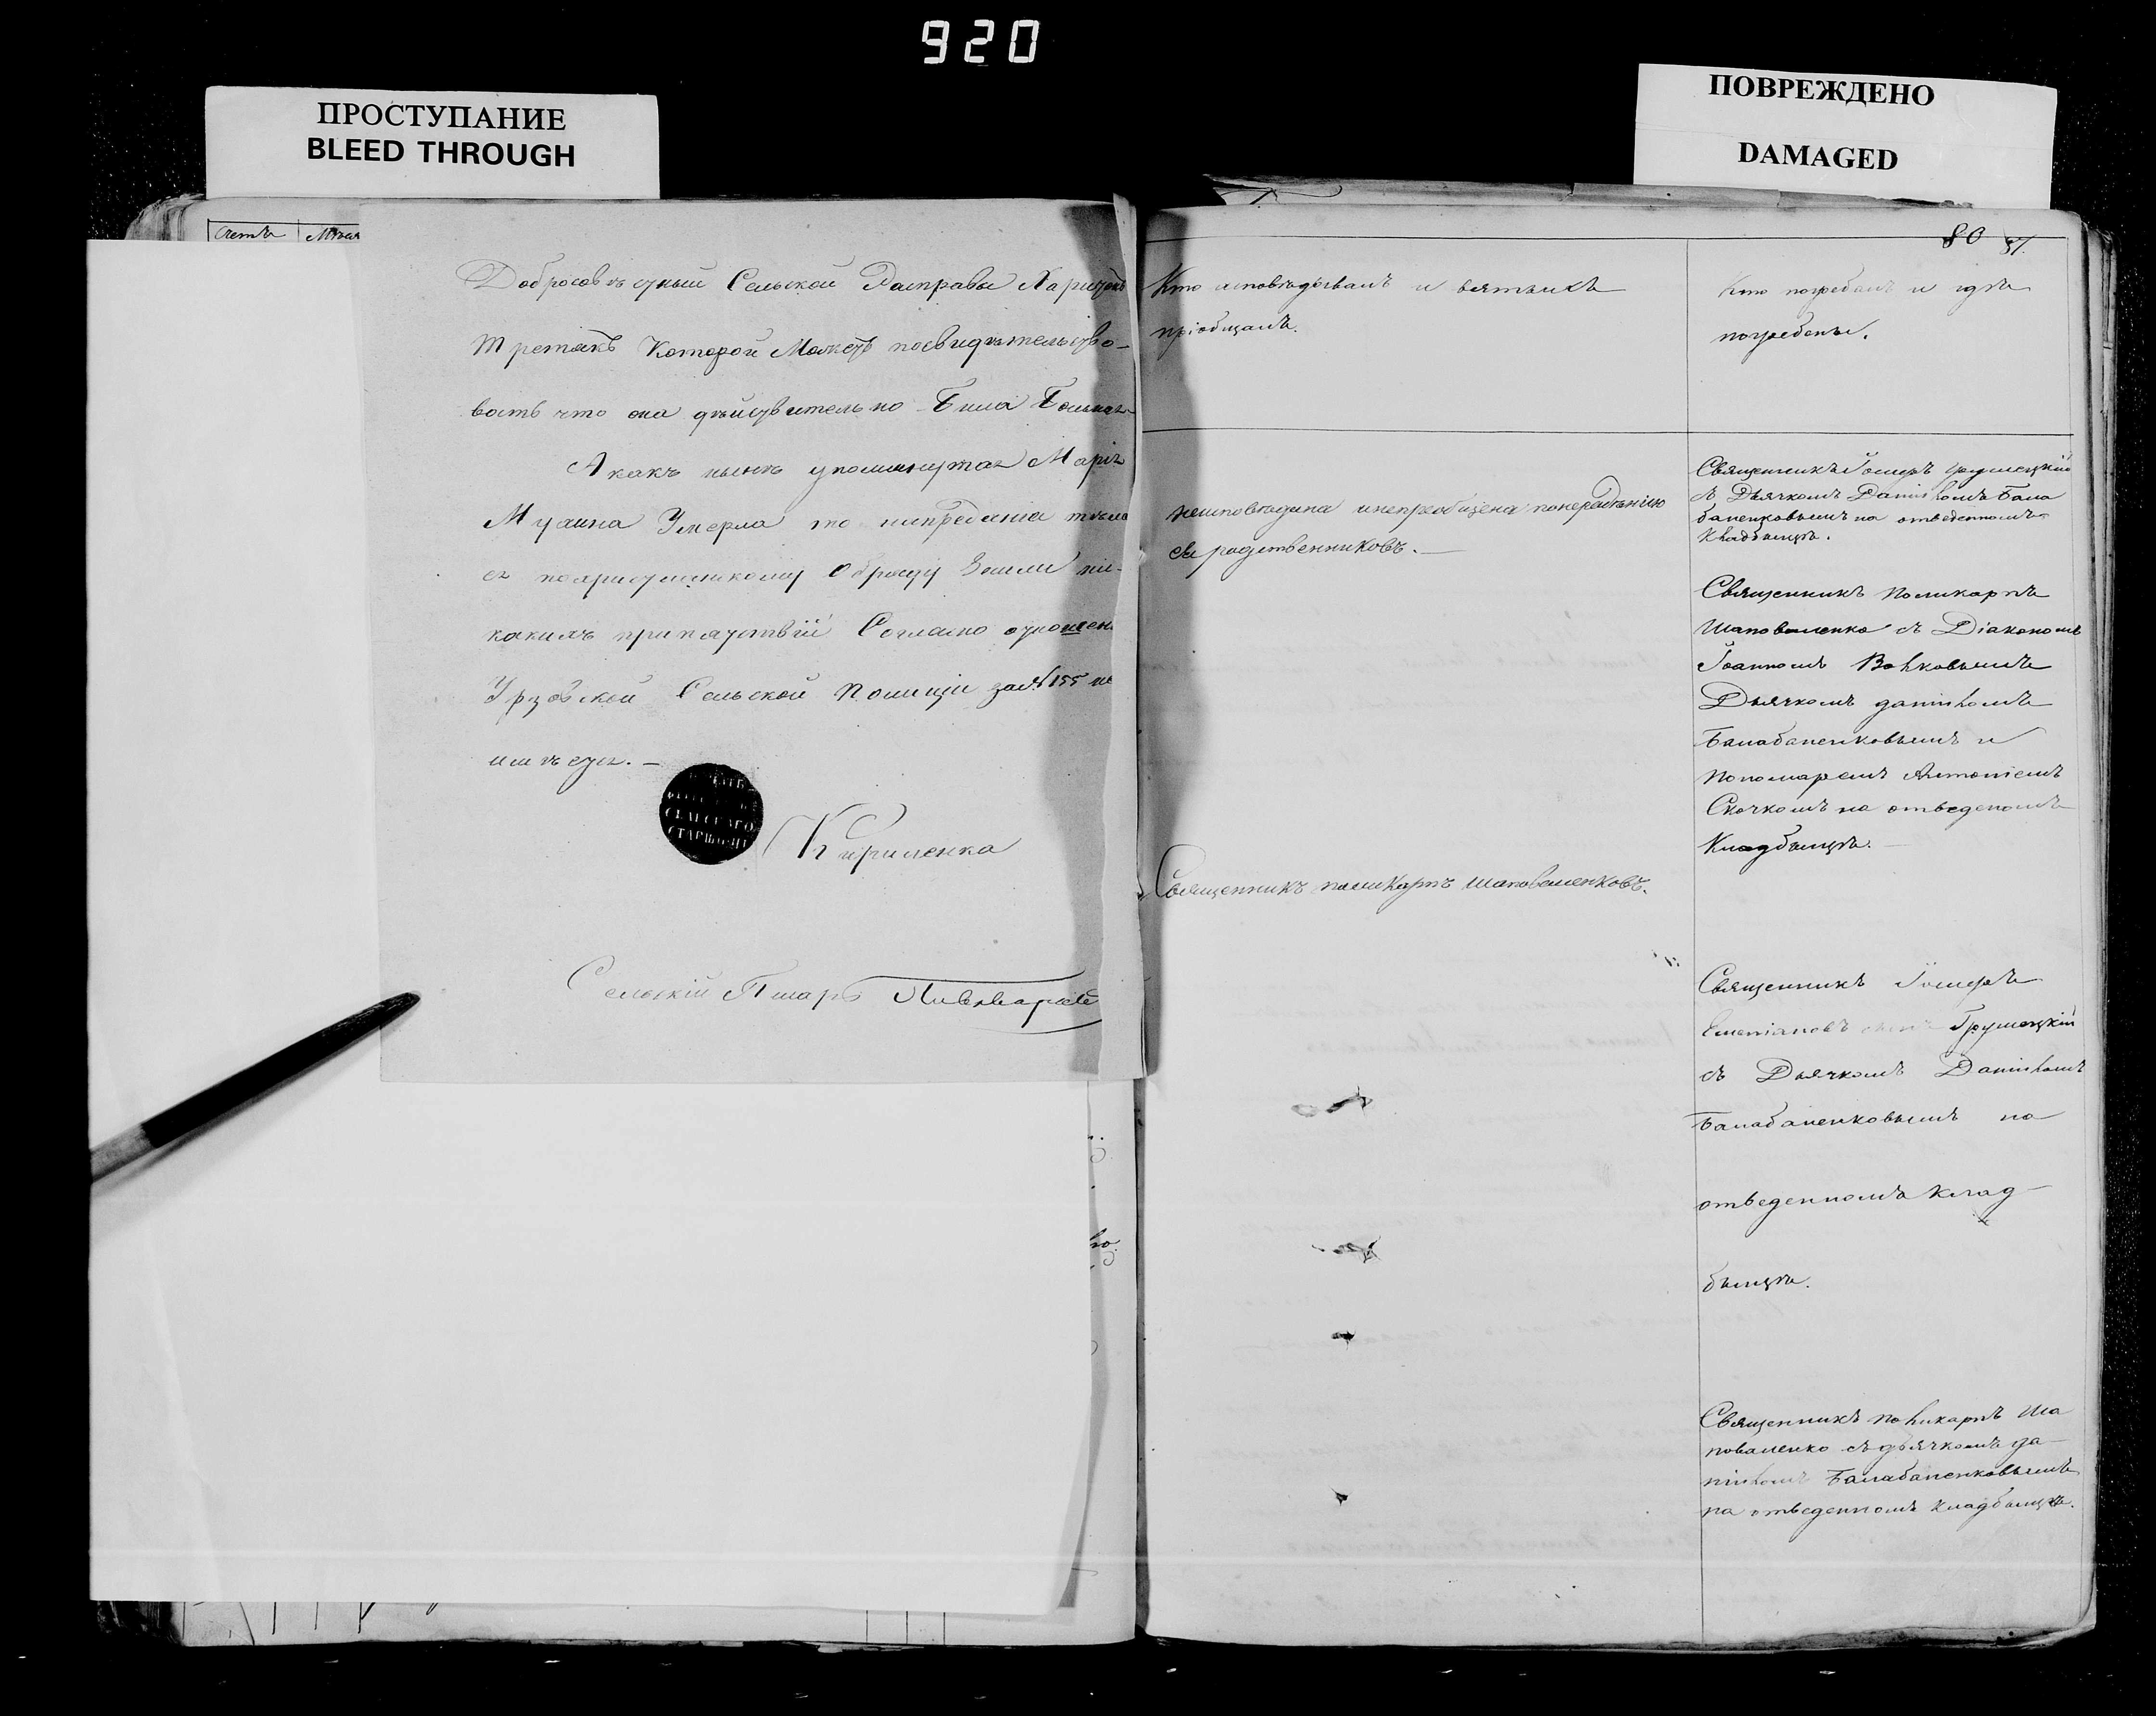 920
ПРОСТУПАНИЕ
BLEED THROUGH
ПОВРЕЖДЕНО
DAMAGED
Счетъ
80
Добросовѣстный Сельской Расправы
Третякъ Которой Можетъ посвидѣтельство-
вать что она дѣйствительно Была Больная
А какъ нынѣ упомянутая Марія
Мухина Умерла то напреданіе тѣла
ея похристіянскому Обряду Земли ни-
какихъ припятствій Согласно отношен
Урзовской Сельской Полиціи за №155 не
имѣетъ. —
СЕЛЬСКАГО
СТАРШИНЫ
Кириленка
Сельскій Писарь
Кто исповѣдывалъ и святыхъ
пріобщалъ.
Кто погребалъ и гдѣ
погребены.
неисповѣдана инепреобщена понерадѣнію
ея родственниковъ. —
Священникъ поликарпъ шаповаленковъ.
Священникъ Іосифъ Грушецкій
съ Дьячкомъ Даниломъ Бала
баненковымъ на отведенномъ
Кладбищѣ.
Священникъ Поликарпъ
Шаповаленко съ Діакономъ
Іоанномъ Волковымъ
Дьячкомъ даниломъ
Балабаненковымъ и
Пономаремъ Антоніемъ
Скочкомъ на отведеномъ
Кладбищѣ.
Священникъ Іосифъ
Емеліановъ Грушецкій
съ Дьячкомъ Даниломъ
Балабаненковымъ на
отведенномъ клад-
бищѣ.
Священникъ поликарпъ Ша
поваленко съ дьячкомъ да-
ніиломъ Балабаненковымъ
на отведенномъ кладбищѣ.